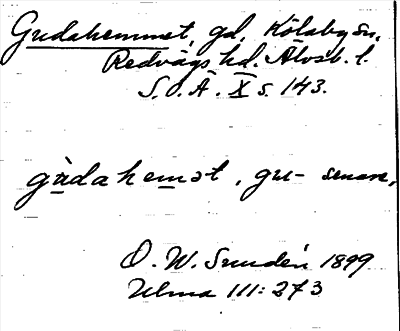 Gudahemmet, gd, Kölaby sn,
Redvägs hd. Älvsb. l.
S.O.Ä. X s. 143.
gùdahemət, gu- senare,
O. W. Sundén 1899
Ulma 111:273